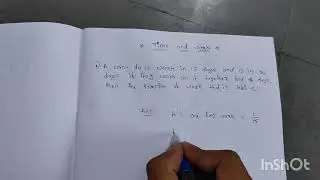 * Time and work *
1) A can do a work in 15 days and B in 20
days. If they work on it together for 4 days,
then the fraction of work that is left =
Ans: A's one day work = 1/15
InShOt